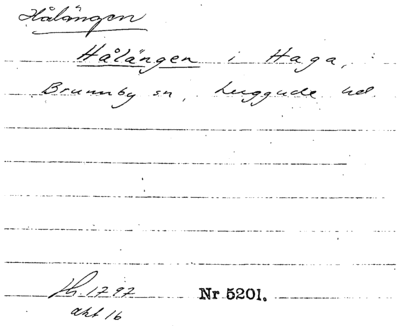 Hålängen
Hålängen i Haga,
Brunnby sn, Luggude hd.
1797 Nr 5201.
akt 16